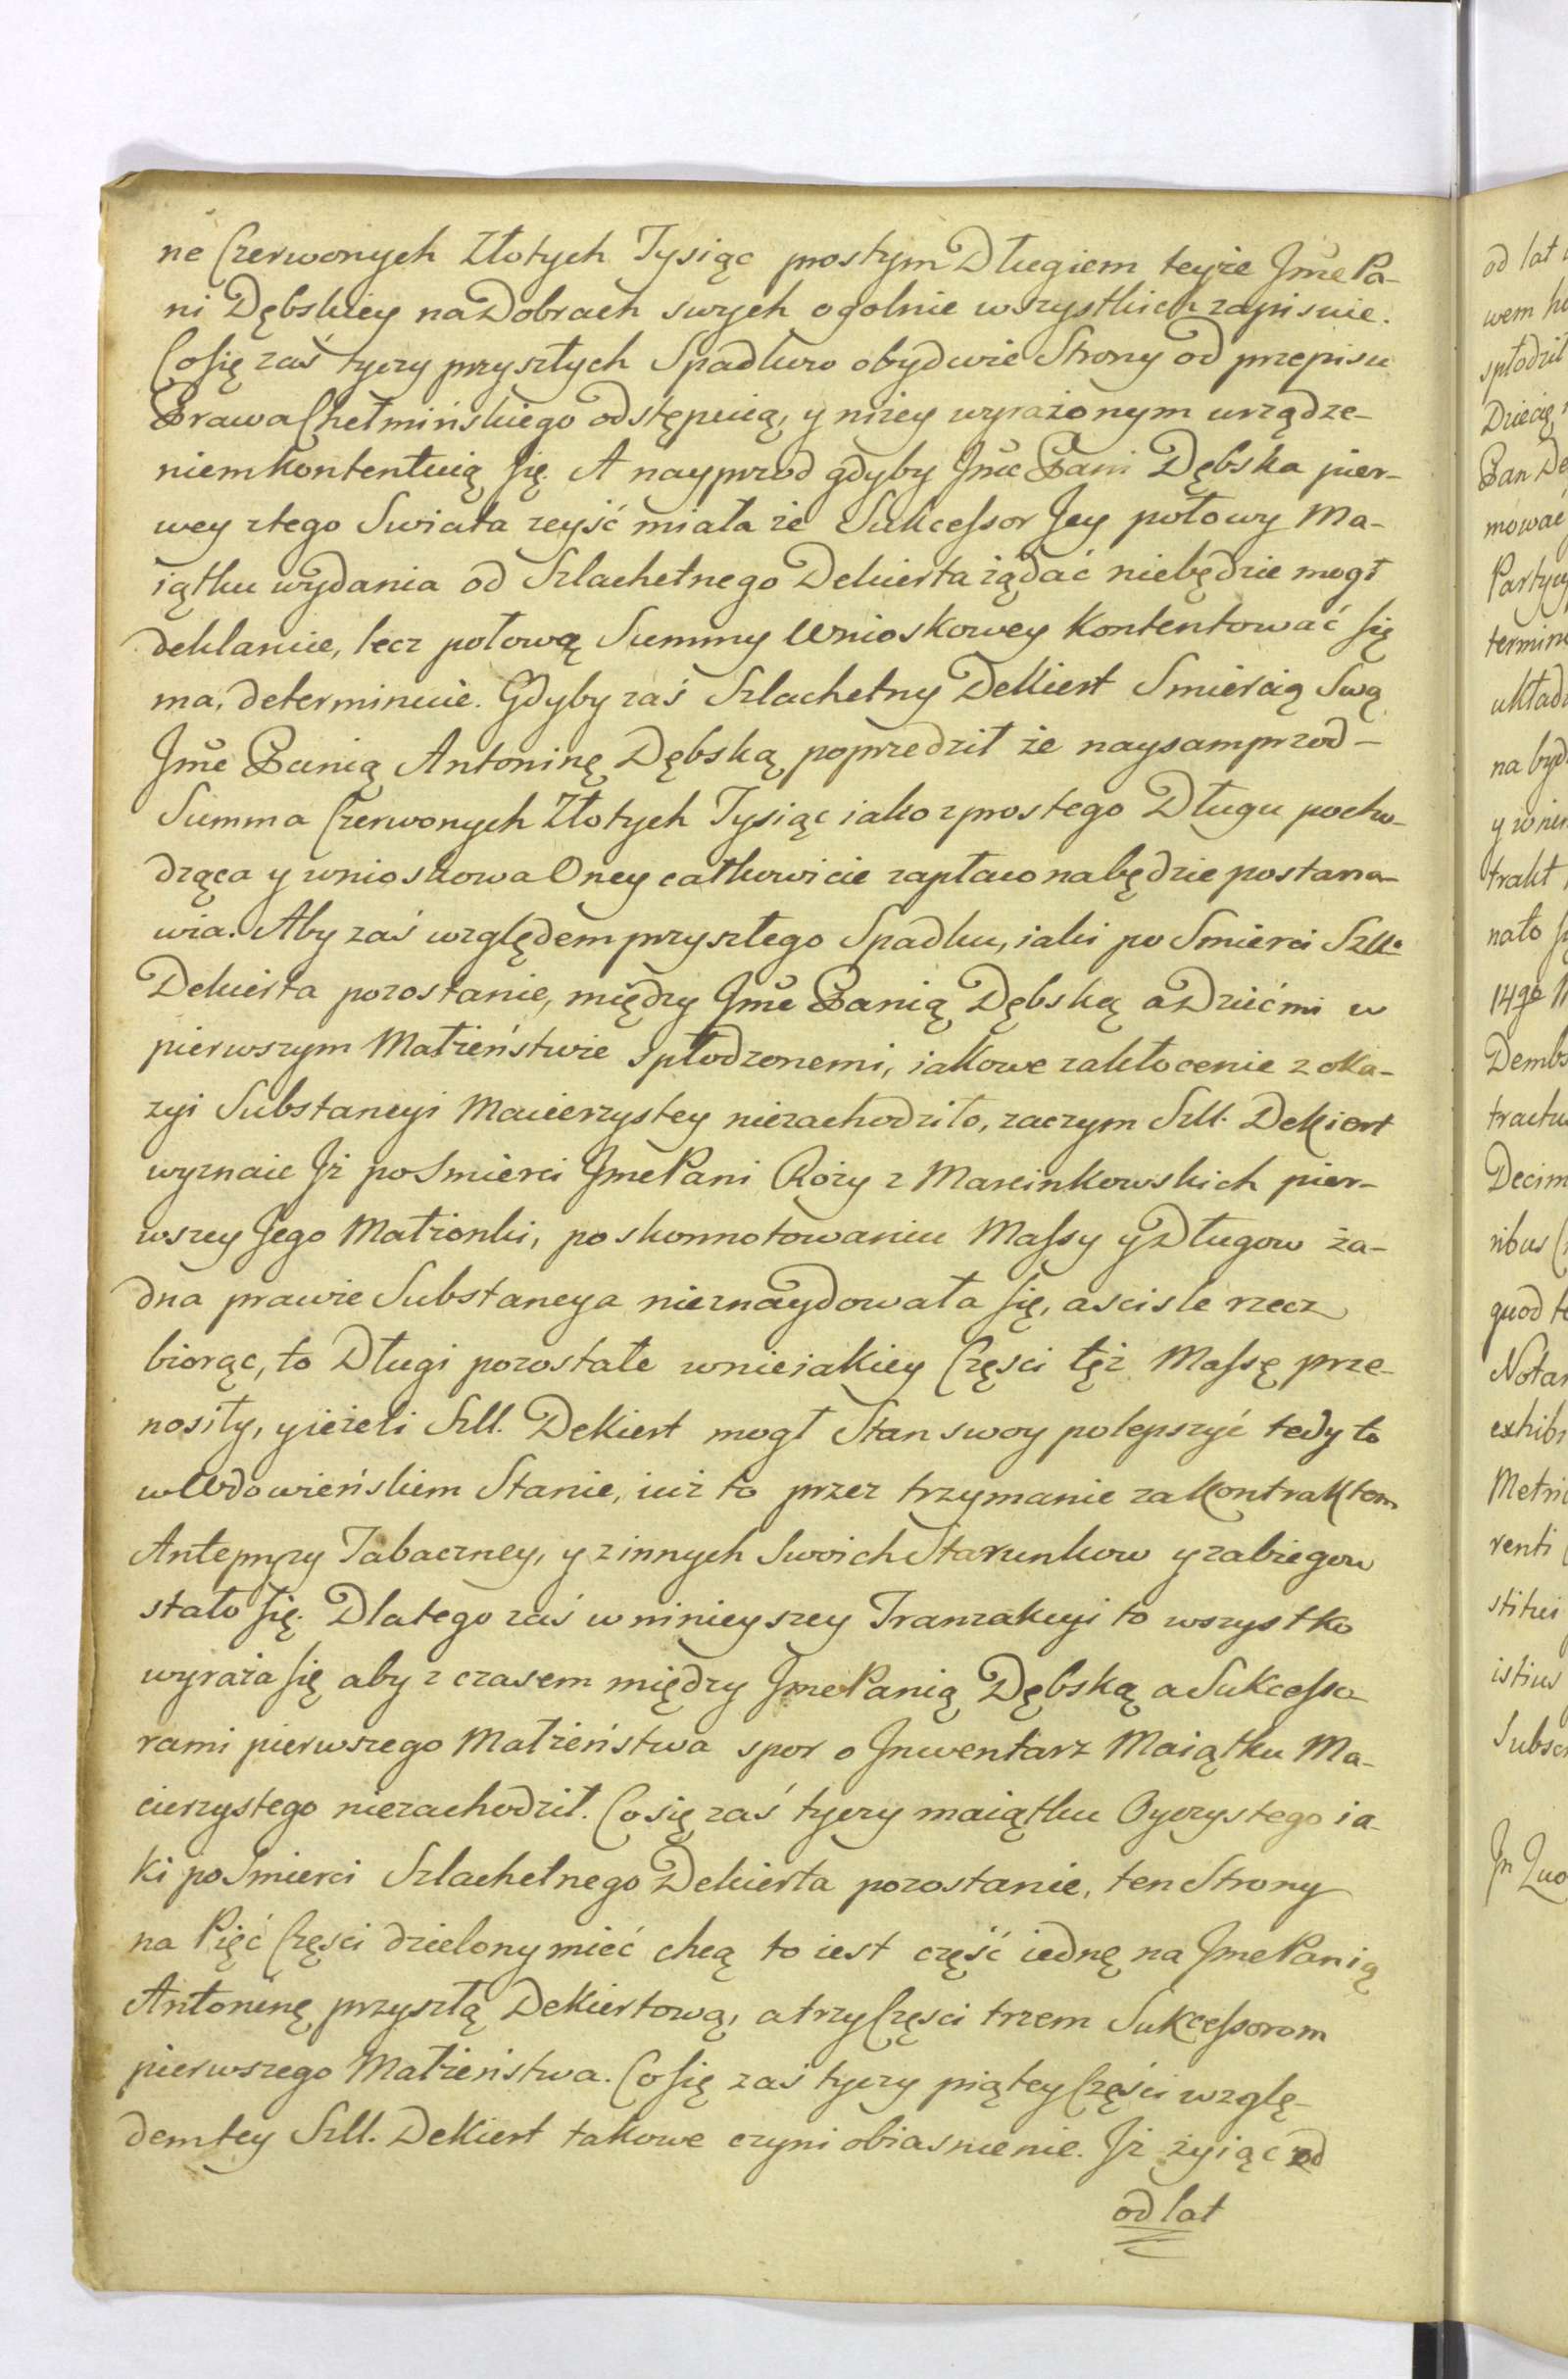 ne Czerwonych Złotych Tysiąc prostym Długiem teyże Jme Pa-
ni Dębskiey na Dobrach swych ogolnie wszystkich zapisuie.
Co się zaś tyczy przyszłych Spadkuw obydwie Strony od przepisu
Prawa Chełmińskiego odstępuią, y niżey wyrażonym urządze-
niem kontentuią się. A nayprzod gdyby Jme Pani Dębska pier-
wey z tego Swiata zeyść miała że Sukcessor Jey połowy Ma-
iątku wydania od Szlachetnego Dekierta żądać niebędzie mogł
deklaruie, lecz połową Summy Wnioskowey kontentować się
ma, determinuie. Gdyby zaś Szlachetny Dekiert Smiercią Swą
Jme Panią Antoninę Dębską poprzedził że naysamprzod-
Summa Czerwonych Złotych Tysiąc iako z prostego Długu pocho-
dząca y wnioskowa Oney całkowicie zapłacona będzie postana-
wia. Aby zaś względem przyszłego Spadku, iaki po Smierci Szll.
Dekierta pozostanie, między Jme Panią Dębską a Dziećmi w
pierwszym Małżeństwie spłodzonemi, iakowe zakłocenie z oka-
zyi Substancyi Macierzystey niezachodziło, zaczym Szll. Dekiert
wyznaie Jż po Smierci Jme Pani Róży z Marcinkowskich pier-
wszey Jego Małżonki, po skonnotowaniu Massy y Długow ża-
dna prawie Substancya nieznaydowała się, a scisle rzecz
biorąc, to Długi pozostałe w nieiakiey Częsci tęż Massę prze-
nosiły, y ieżeli Szll. Dekiert mogł Stan swoy polepszyć tedy to
w Wdowieńskiem Stanie, iuż to przez trzymanie za Kontraktem
Antepryzy Tabaczney, y z innych Swoich Starunkow y zabiegow
stało się. Dlatego zaś w ninieyszey Tranzakcyi to wszystko
wyraża się aby z czasem między Jme Panią Dębską a Sukcesso-
rami pierwszego Małżeństwa spor o Jnwentarz Maiątku Ma-
cierzystego niezachodził. Co się zaś tyczy maiątku Oyczystego ia-
ki po Smierci Szlachetnego Dekierta pozostanie, ten Strony
na Pięć Częsci dzielony mieć chcą to iest część iednę na Jme Panią
Antoninę przyszłą Dekiertową, a trzy Częsci trzem Sukcessorom
pierwszego Małżeństwa. Co się zaś tyczy piątey Częsci wzglę-
dem tey Szll. Dekiert takowe czyni obiasnienie. Jż żyiąc od
od lat
od lat
wem
spłodził
Dziecię
Pan De
mowac
Party
termin
układ
na byd
y w nin
trakt
nało
14go
Dembs
tractu
Decim
ribus
quod
Notar
exhibi
Metri
renti
stitui
istius
Subsc
Jn Quo